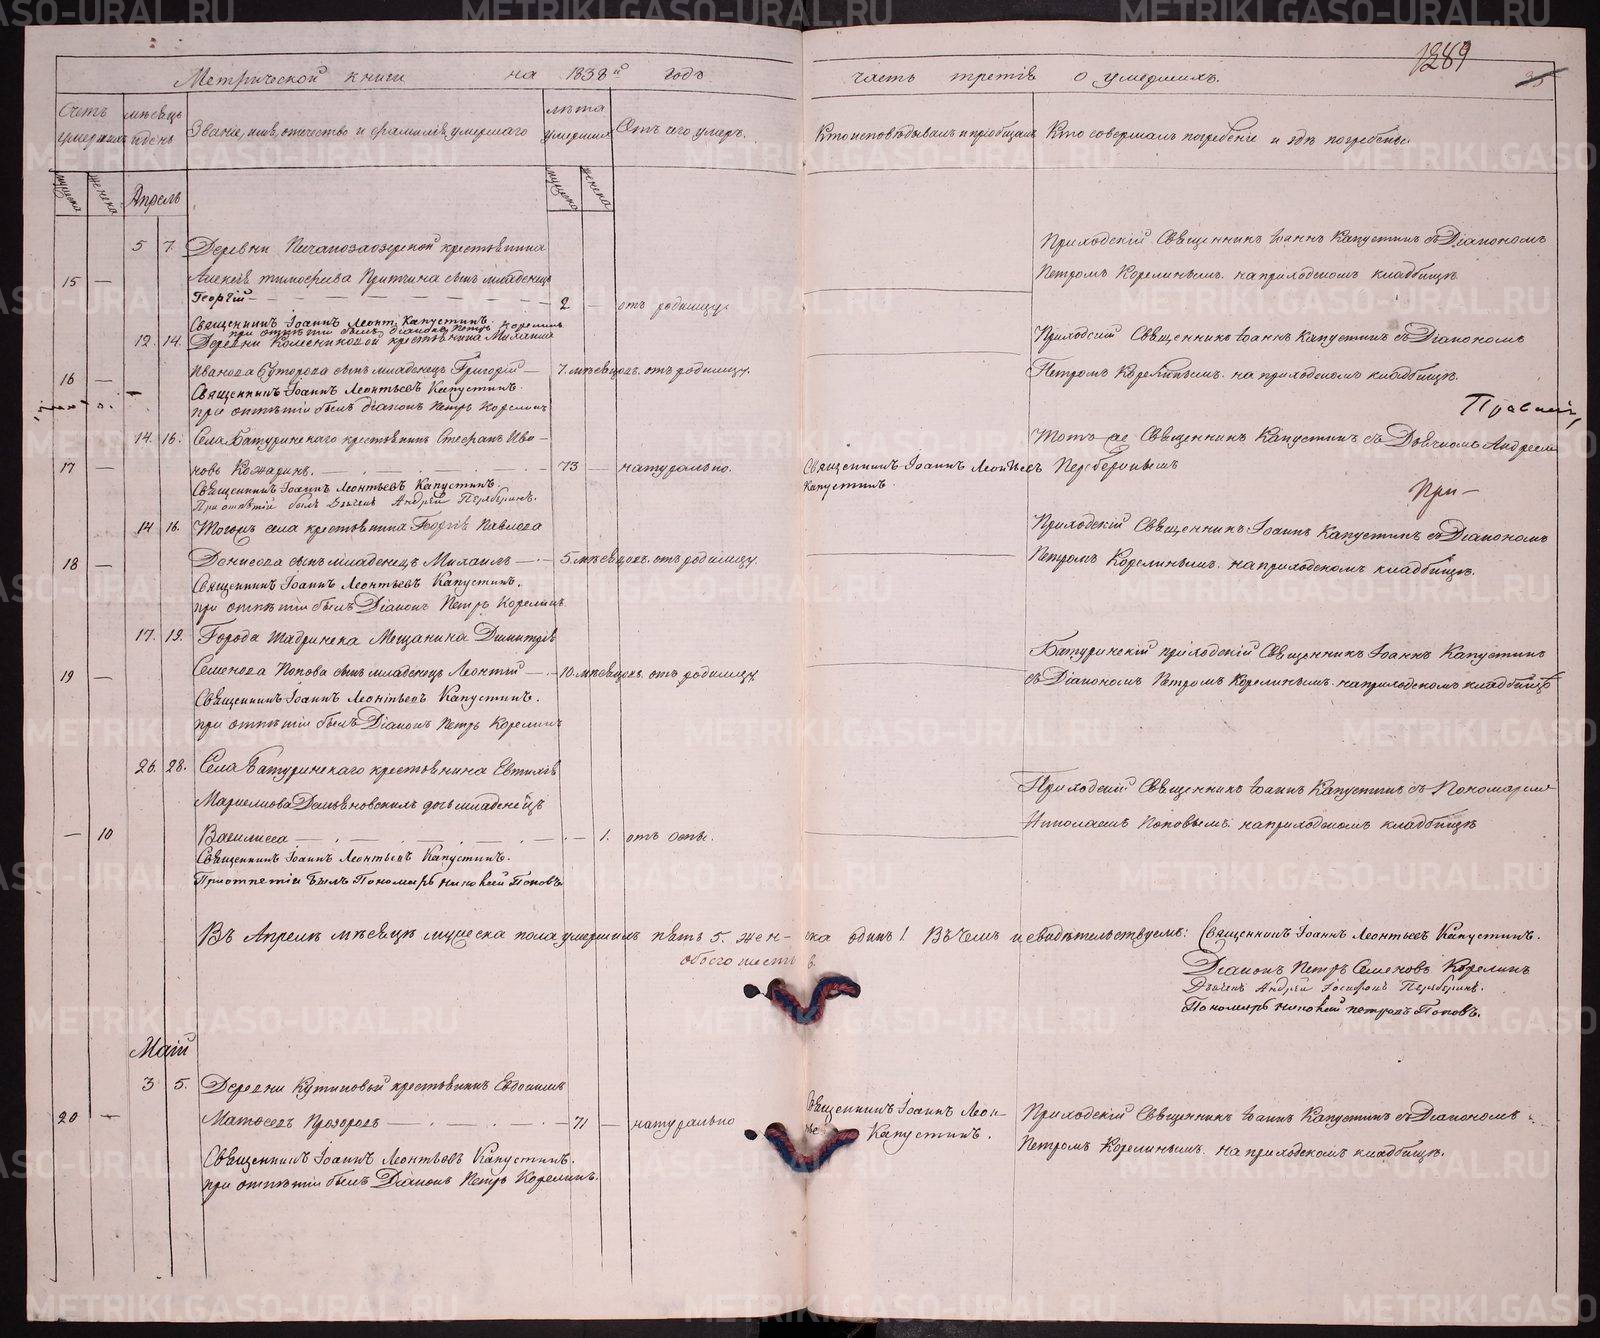 Метрической книги на 1838й годъ часть третія о умершихъ.
1289
Счетъ умершихъ
мѣсяцъ и день
Званіе, имя, отечество и фамилія, умершаго
лѣта умершихъ
Отъ чего умеръ.
Кто исповѣдывалъ и пріобщалъ
Кто совершалъ погребеніе и гдѣ погребены
мужеска женска
Апрель
мужеска женска
5 7. Деревни крестьянина
Алексѣя тимофѣева сынъ младенецъ
15 — Георгій — 2 — отъ родимцу
Приходскій Священникъ Іоаннъ Капустинъ съ Діакономъ
Петромъ Корелинымъ. на приходскомъ кладбищѣ
Священникъ Іоаннъ Леонт. Капустинъ.
при отпѣтіи былъ діаконъ Петръ Корелинъ
12. 14. Деревни Колесниковой крестьянина Михаила
16 — Иванова Суторова сынъ младенецъ Григорій — 7. мѣсяцовъ. отъ родимцу.
Приходскій Священникъ Іоаннъ Капустинъ съ Діакономъ
Петромъ Корелинымъ. на приходскомъ кладбищѣ.
Священникъ Іоаннъ Леонтьевъ Капустинъ.
при отпѣтіи былъ діаконъ Петръ Корелинъ
14. 16. Села Батуринскаго крестьянинъ Стефанъ Ива-
17 — новъ Кожаринъ. — 73 — натурально.
Священникъ Іоаннъ Леонтьевъ
Капустинъ.
Тотъ же Священникъ Капустинъ съ Дьячкомъ Андреемъ
Священникъ Іоаннъ Леонтьевъ Капустинъ.
При отпѣтіи былъ Дьячекъ Андрей
При-
14 16. Тогожъ села крестьянина Георгія Павлова
18 — Донисова сынъ младенецъ Михаилъ — 5. мѣсяцовъ. отъ родимцу.
Приходскій Священникъ Іоаннъ Капустинъ съ Діакономъ
Петромъ Корелинымъ. на приходскомъ кладбищѣ.
Священникъ Іоаннъ Леонтьевъ Капустинъ.
при отпѣтіи былъ Діаконъ Петръ Корелинъ.
17. 19. Города Шадринска Мещанина Димитрія
19 — Семенова Попова сынъ младенецъ Леонтій — 10. мѣсяцовъ. отъ родимцу.
Батуринскій приходскій Священникъ Іоаннъ Капустинъ
съ Діакономъ Петромъ Корелинымъ. на приходскомъ кладбищѣ
Священникъ Іоаннъ Леонтьевъ Капустинъ.
при отпѣтіи былъ Діаконъ Петръ Корелинъ
26. 28. Села Батуринскаго крестьянина Евтихія
дочь младенецъ
— 10 Василисса — 1. отъ оспы.
Приходскій Священникъ Іоаннъ Капустинъ съ Пономаремъ
Николаемъ Поповымъ. на приходскомъ кладбищѣ
Священникъ Іоаннъ Леонтьевъ Капустинъ.
При отпетіи былъ Пономарь Николай Поповъ
Въ Апрелѣ мѣсяцѣ мужеска пола умершихъ пять 5. женска одинъ 1. Въ чемъ и свидѣтельствуемъ: Священникъ Іоаннъ Леонтьевъ Капустинъ.
обоего шесть 6.
Діаконъ Петръ Семеновъ Корелинъ
Дьячекъ Андрей
Пономарь Николай Петровъ Поповъ.
Маій
3 5. Деревни крестьянинъ Евдокимъ
20 — Матвеевъ Прозоровъ — 71 — натурально
Священникъ Іоаннъ Леон-
Капустинъ.
Приходскій Священникъ Іоаннъ Капустинъ съ Діакономъ
Петромъ Корелинымъ. на приходскомъ кладбищѣ.
Священникъ Іоаннъ Леонтьевъ Капустинъ.
при отпѣтіи былъ Діаконъ Петръ Корелинъ.
METRIKI.GASO-URAL.RU